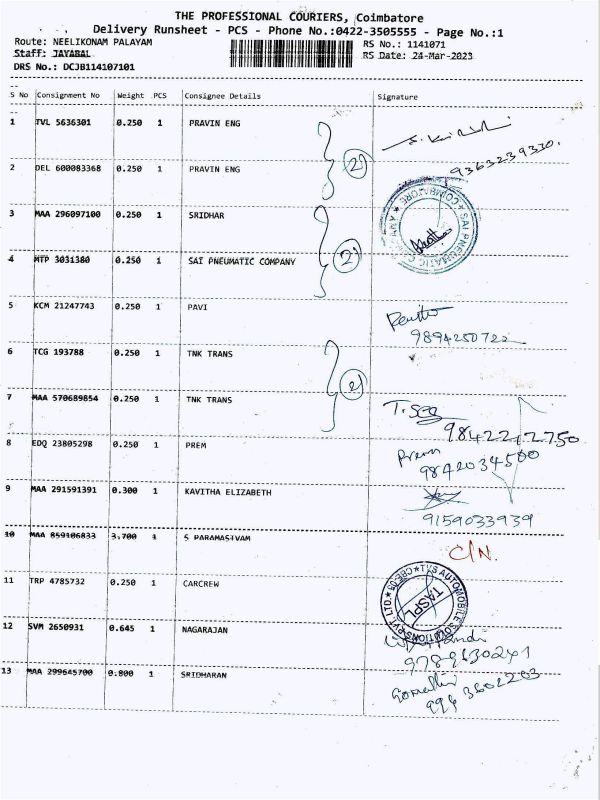 THE PROFESSIONAL COURIERS, Coimbatore
Delivery Runsheet - PCS - Phone No.:0422-3505555 - Page No.:1
Route: NEELIKONAM PALAYAM RS No.: 1141071
Staff: JAYABAL RS Date: 24-Mar-2023
DRS No.: DCJB114107101
S No Consignment No Weight PCS Consignee Details Signature
1 TVL 5636301 0.250 1 PRAVIN ENG
2 DEL 600083368 0.250 1 PRAVIN ENG 2 9363239330.
3 MAA 296097100 0.250 1 SRIDHAR
SAI PNEUMATIC COMPANY COIMBATORE
4 MTP 3031380 0.250 1 SAI PNEUMATIC COMPANY 2
5 KCM 21247743 0.250 1 PAVI
9894250722
6 TCG 193788 0.250 1 TNK TRANS
2
7 MAA 570689854 0.250 1 TNK TRANS
9842212750
8 EDQ 23805298 0.250 1 PREM Prem
9842034500
9 MAA 291591391 0.300 1 KAVITHA ELIZABETH
9159033939
10 MAA 859106833 3.700 1 S PARAMASIVAM C/N.
11 TRP 4785732 0.250 1 CARCREW
TVS AUTOMOBILE SOLUTIONS PVT LTD. CBE-03
TASPL
12 SVM 2650931 0.645 1 NAGARAJAN
13 MAA 299645700 0.800 1 SRIDHARAN Gomathi